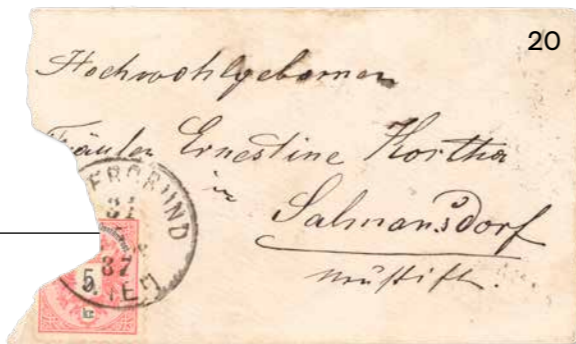 20
Hochwohlgeboren
Fräulen Ernestine Kortha
in
Salmansdorf
ERGRUND
87
WIEN
5
kr